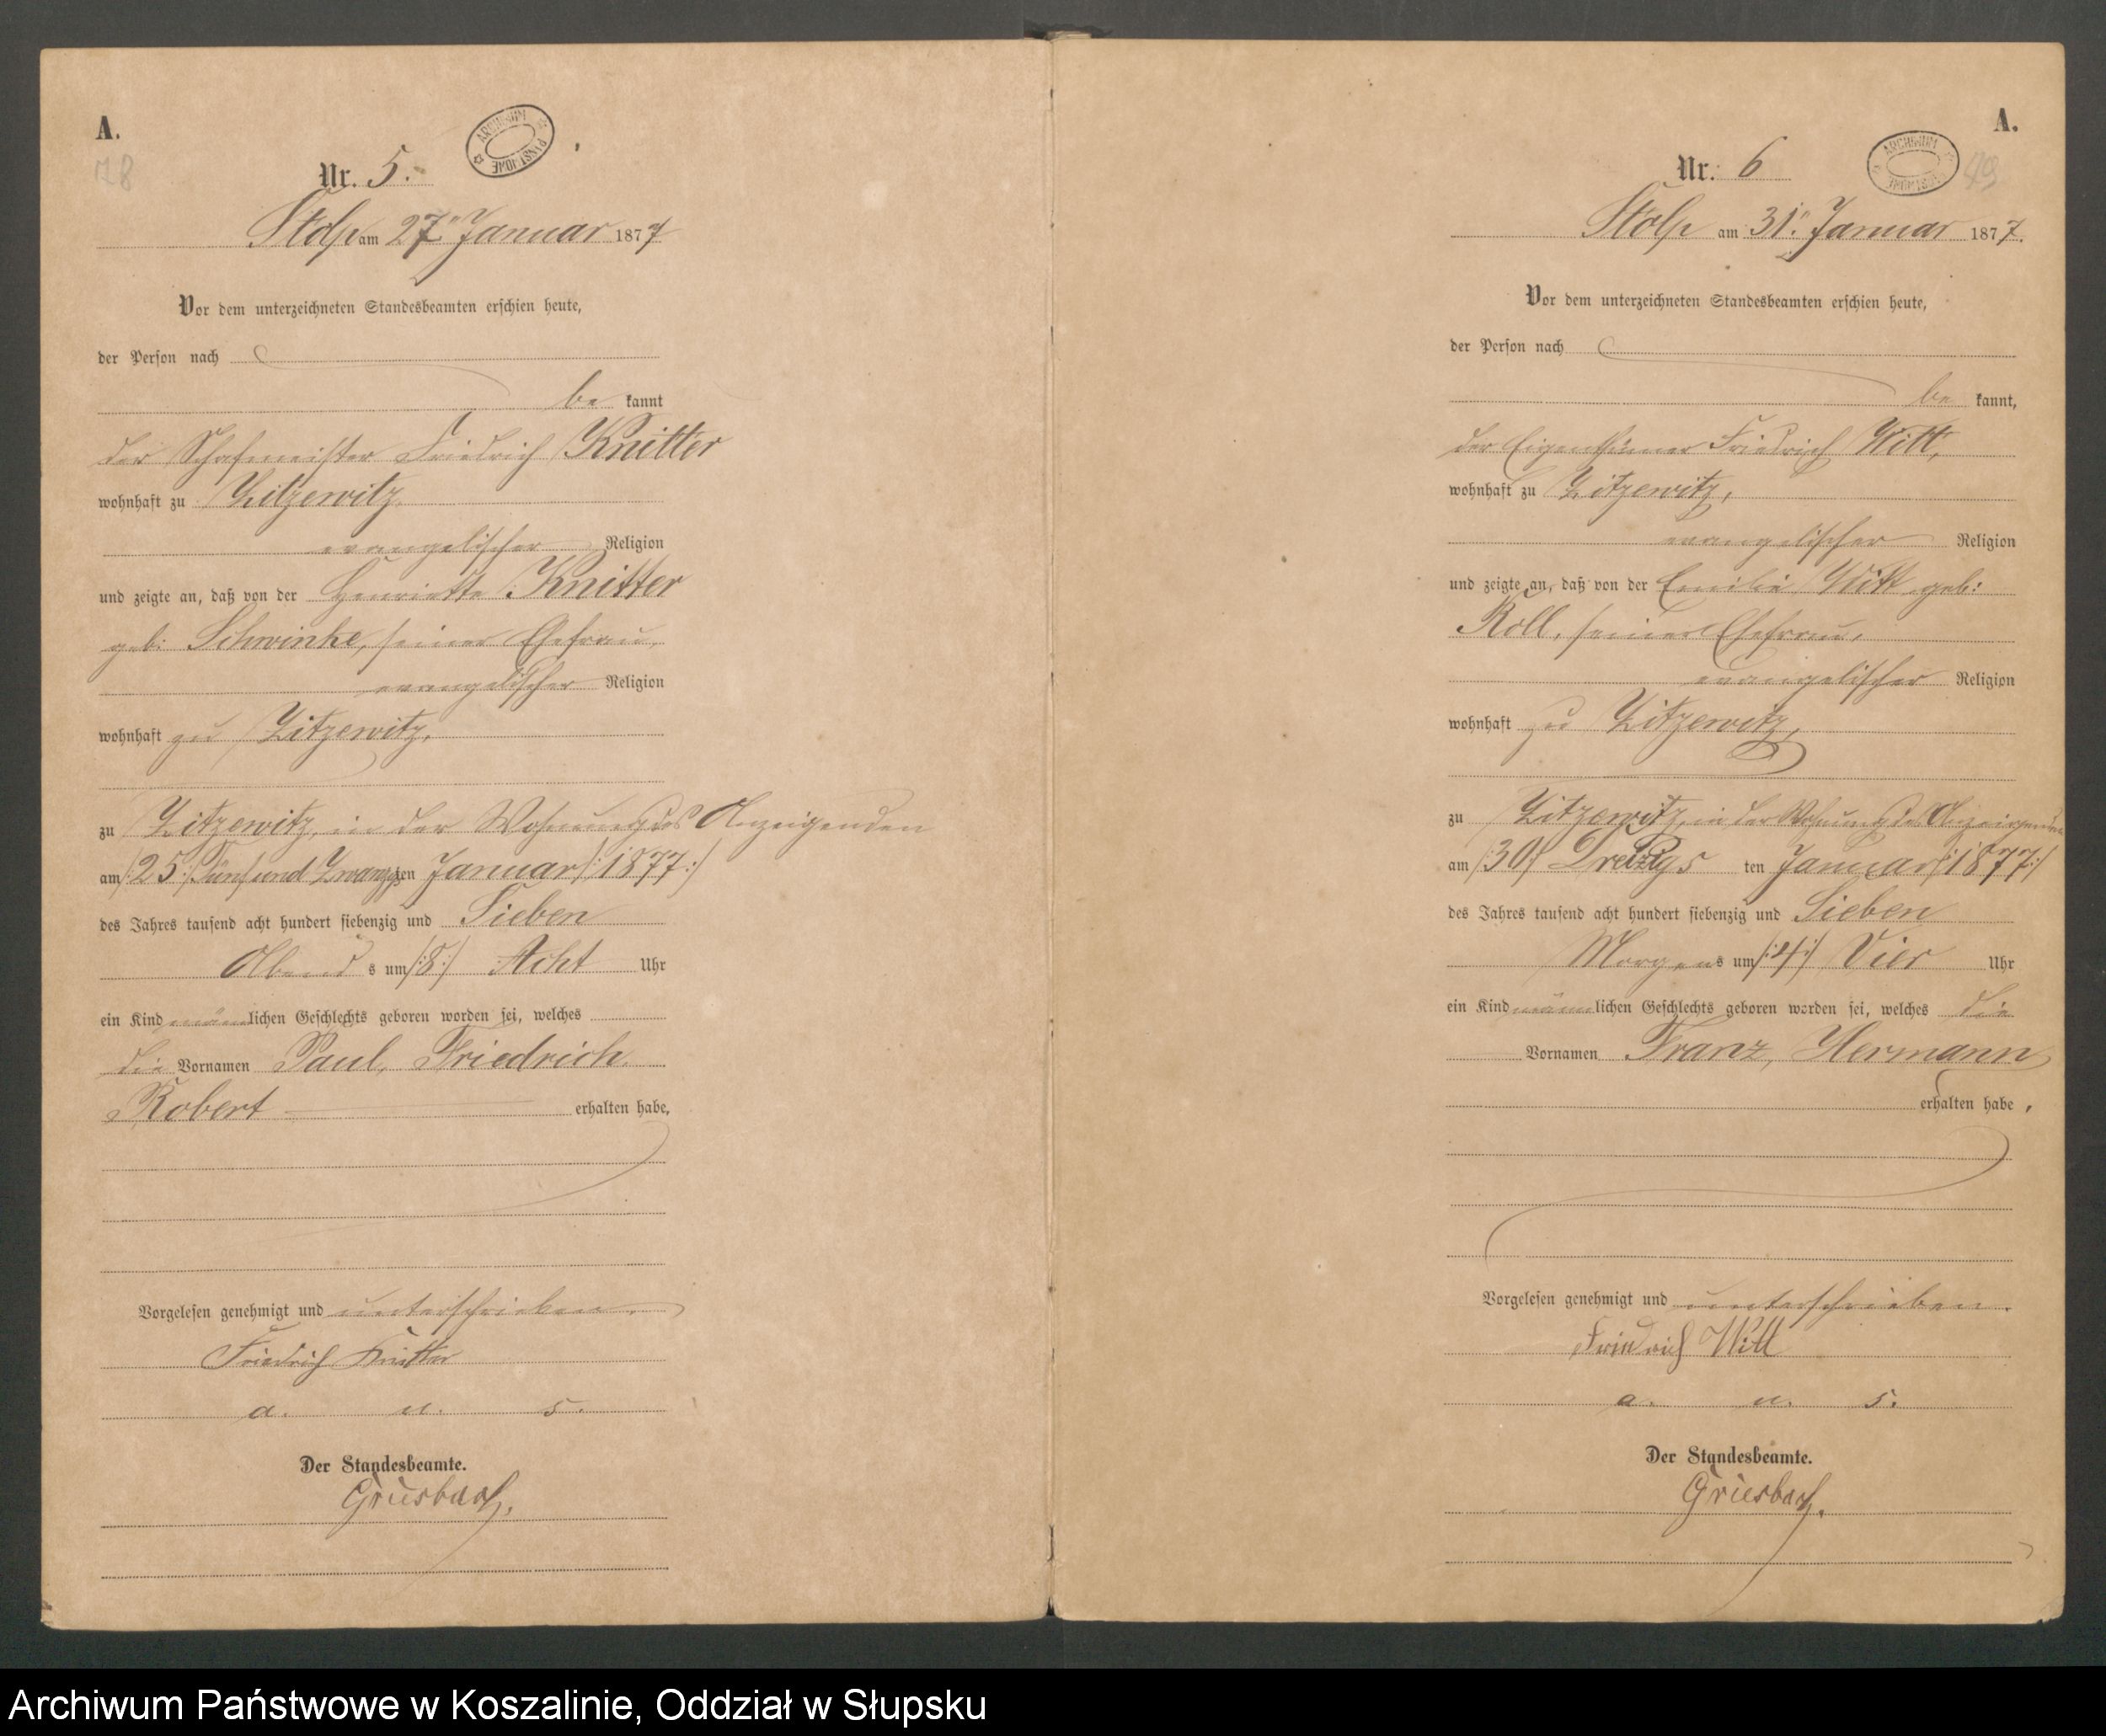 A.
78
ARCHIWUM PAŃSTWOWE
Nr. 5.
Stolp am 27ten Januar 1877
Vor dem unterzeichneten Standesbeamten erschien heute,
der Person nach
be kannt
der Schafmeister Friedrich Knitter
wohnhaft zu Zitzewitz,
evangelischer Religion
und zeigte an, daß von der Henriette Knitter
geb: Schwinke, seiner Ehefrau,
evangelischer Religion
wohnhaft zu Zitzewitz,
zu Zitzewitz, in der Wohnung des Anzeigenden
am /:25:/ Fünf und Zwanzigsten Januar /:1877:/
des Jahres tausend acht hundert siebenzig und Sieben
Abends um /:8:/ Acht Uhr
ein Kind männlichen Geschlechts geboren worden sei, welches
die Vornamen Paul, Friedrich,
Robert erhalten habe,
Vorgelesen genehmigt und unterschrieben.
Friedrich Knitter
a. u. s.
Der Standesbeamte.
Griesbach.
A.
79
ARCHIWUM PAŃSTWOWE
Nr. 6
Stolp am 31ten Januar 1877.
Vor dem unterzeichneten Standesbeamten erschien heute,
der Person nach
be kannt,
der Eigenthümer Friedrich Witt,
wohnhaft zu Zitzewitz,
evangelischer Religion
und zeigte an, daß von der Emilie Witt geb:
Roll, seiner Ehefrau,
evangelischer Religion
wohnhaft zu Zitzewitz,
zu Zitzewitz, in der Wohnung des Anzeigenden
am /:30:/ Dreizigs ten Januar /:1877:/
des Jahres tausend acht hundert siebenzig und Sieben
Morgens um /:4:/ Vier Uhr
ein Kind männlichen Geschlechts geboren worden sei, welches die
Vornamen Franz, Hermann
erhalten habe,
Vorgelesen genehmigt und unterschrieben.
Friedrich Witt
a. u. s.
Der Standesbeamte.
Griesbach.
Archiwum Państwowe w Koszalinie, Oddział w Słupsku